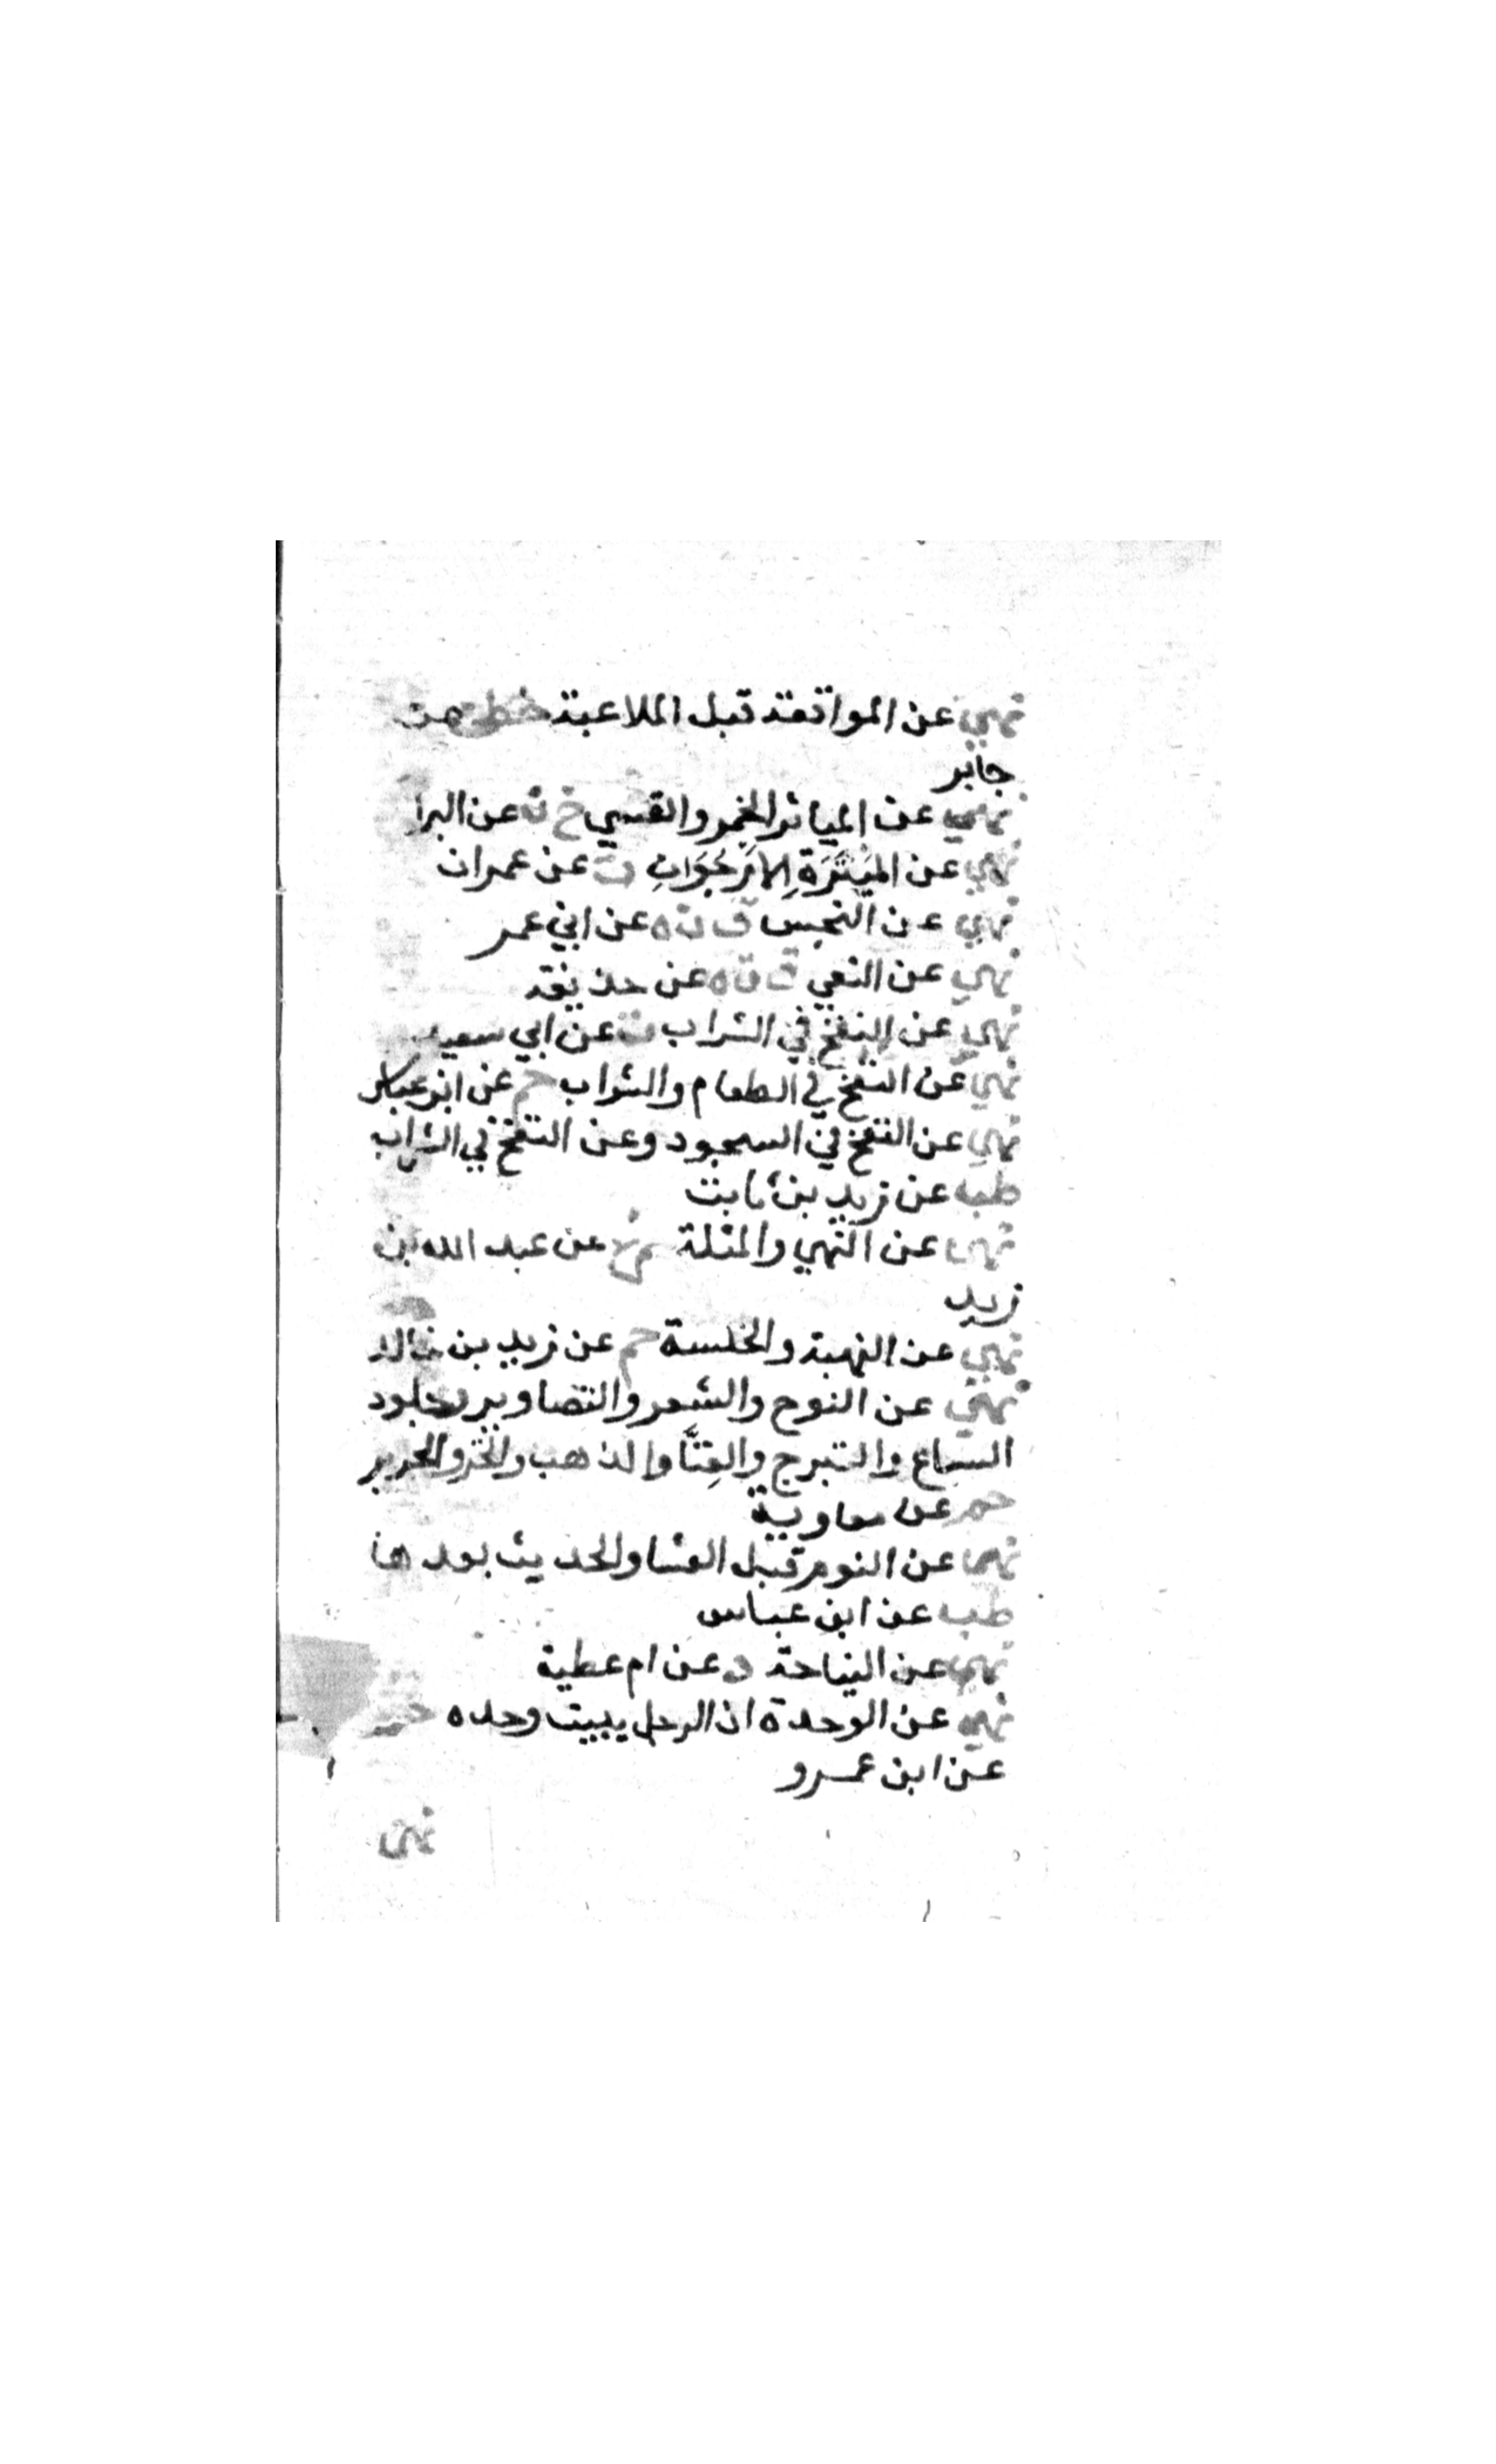 نهي عن المواقعة قبل الملاعبة خط عن
جابر
نهي عن المياثر الحمر والقسي خ ت عن البرا
نهي عن الميثَرَة الارجُوَانِ ت عن عمران
نهي عن النجش ق ن ه عن ابي عمر
نهي عن النعي ت ه عن حذيفة
نهي عن النفخ في الشراب ت عن ابي سعيد
نهي عن النفخ في الطعام والشراب حم عن ابن عباس
نهي عن النفخ في السجود وعن النفخ في الشراب
طب عن زيد بن ثابت
نهي عن النهبي والمثلة حم خ عن عبد الله بن
زيد
نهي عن النهبة والخلسة حم عن زيد بن خالد
نهي عن النوح والشعر والتصاوير وجلود
السباع والتبرج والغِنَّا والذهب والخز والحرير
حم عن معاوية
نهي عن النوم قبل العشا والحديث بعدها
طب عن ابن عباس
نهي عن النياحة د عن ام عطية
نهي عن الوحدة ان الرجل يبيت وحده حم
عن ابن عمرو
نهي